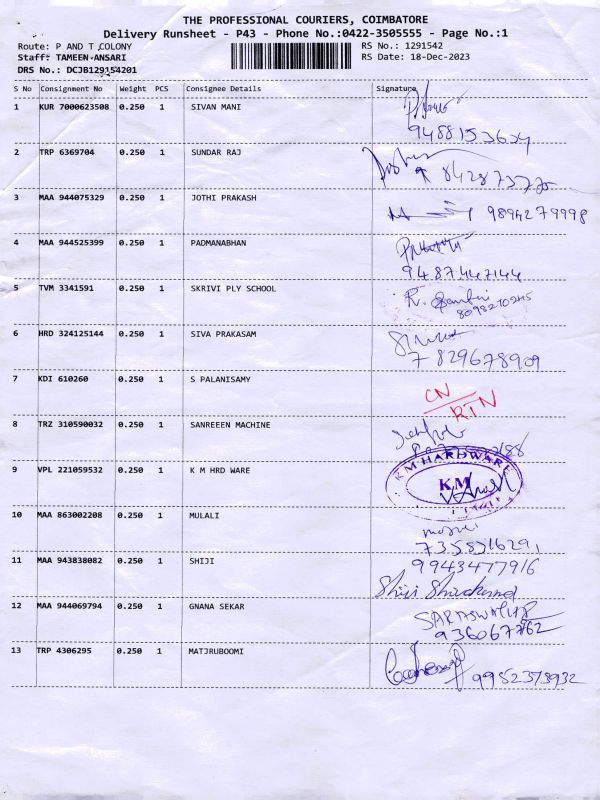 THE PROFESSIONAL COURIERS, COIMBATORE
Delivery Runsheet - P43 - Phone No.:0422-3505555 - Page No.:1
Route: P AND T COLONY RS No.: 1291542
Staff: TAMEEN ANSARI RS Date: 18-Dec-2023
DRS No.: DCJB129154201
S No Consignment No Weight PCS Consignee Details Signature
1 KUR 7000623508 0.250 1 SIVAN MANI
9488153634
2 TRP 6369704 0.250 1 SUNDAR RAJ
3 MAA 944075329 0.250 1 JOTHI PRAKASH
9894279998
4 MAA 944525399 0.250 1 PADMANABHAN
9487447144
5 TVM 3341591 0.250 1 SKRIVI PLY SCHOOL
6 HRD 324125144 0.250 1 SIVA PRAKASAM
7829678909
7 KDI 610260 0.250 1 S PALANISAMY
CN
RTN
8 TRZ 310590032 0.250 1 SANREEEN MACHINE
9 VPL 221059532 0.250 1 K M HRD WARE
KM HARDWARE
KM
10 MAA 863002208 0.250 1 MULALI
7358516291
11 MAA 943838082 0.250 1 SHIJI
9943477916
Shiji
12 MAA 944069794 0.250 1 GNANA SEKAR
13 TRP 4306295 0.250 1 MATJRUBOOMI